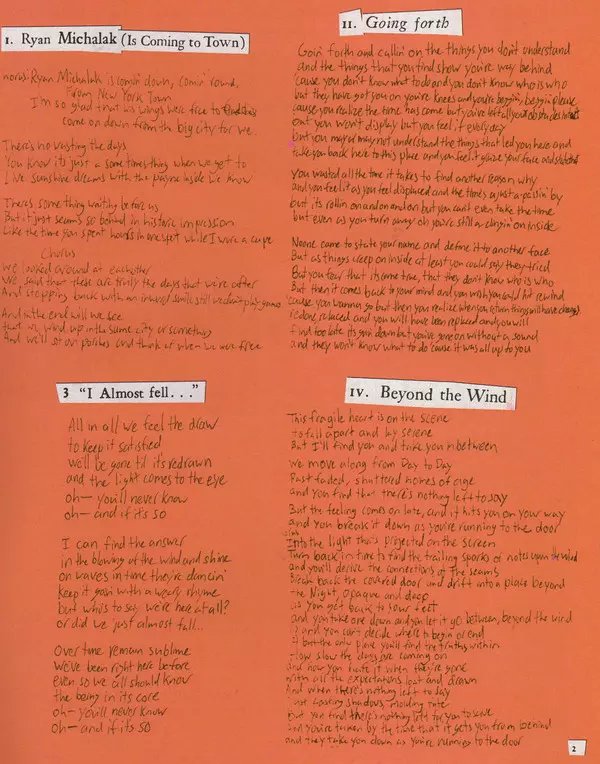 1. Ryan Michalak (Is Coming to Town)
Ryan Michalak is comin' down, comin' 'round,
From New York Town
I'm so glad that his wings were free to
come on down from the big city for we.
There's no wasting the days
You know it's just a some times thing when we get to
Live sunshine dreams with the inside we know
There's some thing waiting before us
But it just seems so behind in historic impression
Like the time you spent hours in one spot while I wore a cape
Chorus
We looked around at eachother
We said that these are truly the days that we're after
And stepping back with an inward smile still we don't play
And in the end will we see
that we wind up in the same city or something
And we'll sit on porches and think of when we were free
11. Going forth
Goin' forth and callin' on the things you don't understand
and the things that you find show you're way behind
'cause you don't know what to do and you don't know who is who
but they have got you on you're knees and you're begin', begin please
'cause you realize the time has come but you've left all your obstacles
that you won't display but you feel it everyday
but you may or may not understand the things that led you here and
take you back here to this place and you feel it graze your face and
You wasted all the time it takes to find another reason why
and you feel it as you feel displaced and the time is a just a passin' by
but its rollin on and on and on but you can't even take the time
but even as you turn away oh you're still a clingin' on inside
No one came to state your name and define it to another face
But as things creep on inside at least you could say they tried
But you fear that its come true, that they don't know who is who
But then it comes back to your mind and you wish you could hit rewind
'cause you wanna go but then you realize when you return things will have changed
redone, replaced and you will have been replaced and you will
find too late its goin down but you've gone on without a sound
and they won't know what to do 'cause it was all up to you
3 "I Almost fell..."
All in all we feel the draw
to keep it satisfied
we'll be gone til it's redrawn
and the light comes to the eye
oh— you'll never know
oh— and if it's so
I can find the answer
in the blowing of the wind and shine
on waves in time they're dancin'
keep it goin with a weary rhyme
but who's to say we're here at all?
or did we just almost fall...
Over time remain sublime
We've been right here before
even so we all should know
the being in its core
oh— you'll never know
oh— and if its so
IV. Beyond the Wind
This fragile heart is on the scene
to fall apart and lay serene
But I'll find you and take you in between
we move along from Day to Day
Past faded, shuttered homes of age
and you find that there's nothing left to say
But the feeling comes on late, and it hits you on your way
and you break it down as you're running to the door
Into the light that's projected on the screen
Turn back in time to find the trailing sparks of notes upon the wind
and you'll derive the connections of the seams
Break back the covered door and drift into a place beyond
the Night, opaque and deep
as you get back to your feet
and you take one down and you let it go between, beyond the wind
and you can't decide where to begin or end
but the only place you'll find the truth's within
slow the days are coming on
and how you hate it when they're gone
with all the expectations lost and drawn
And when there's nothing left to say
shadows,
But you find there's nothing left for you to save
And you're taken by the time that it gets you from behind
and they take you down as you're running to the door
2